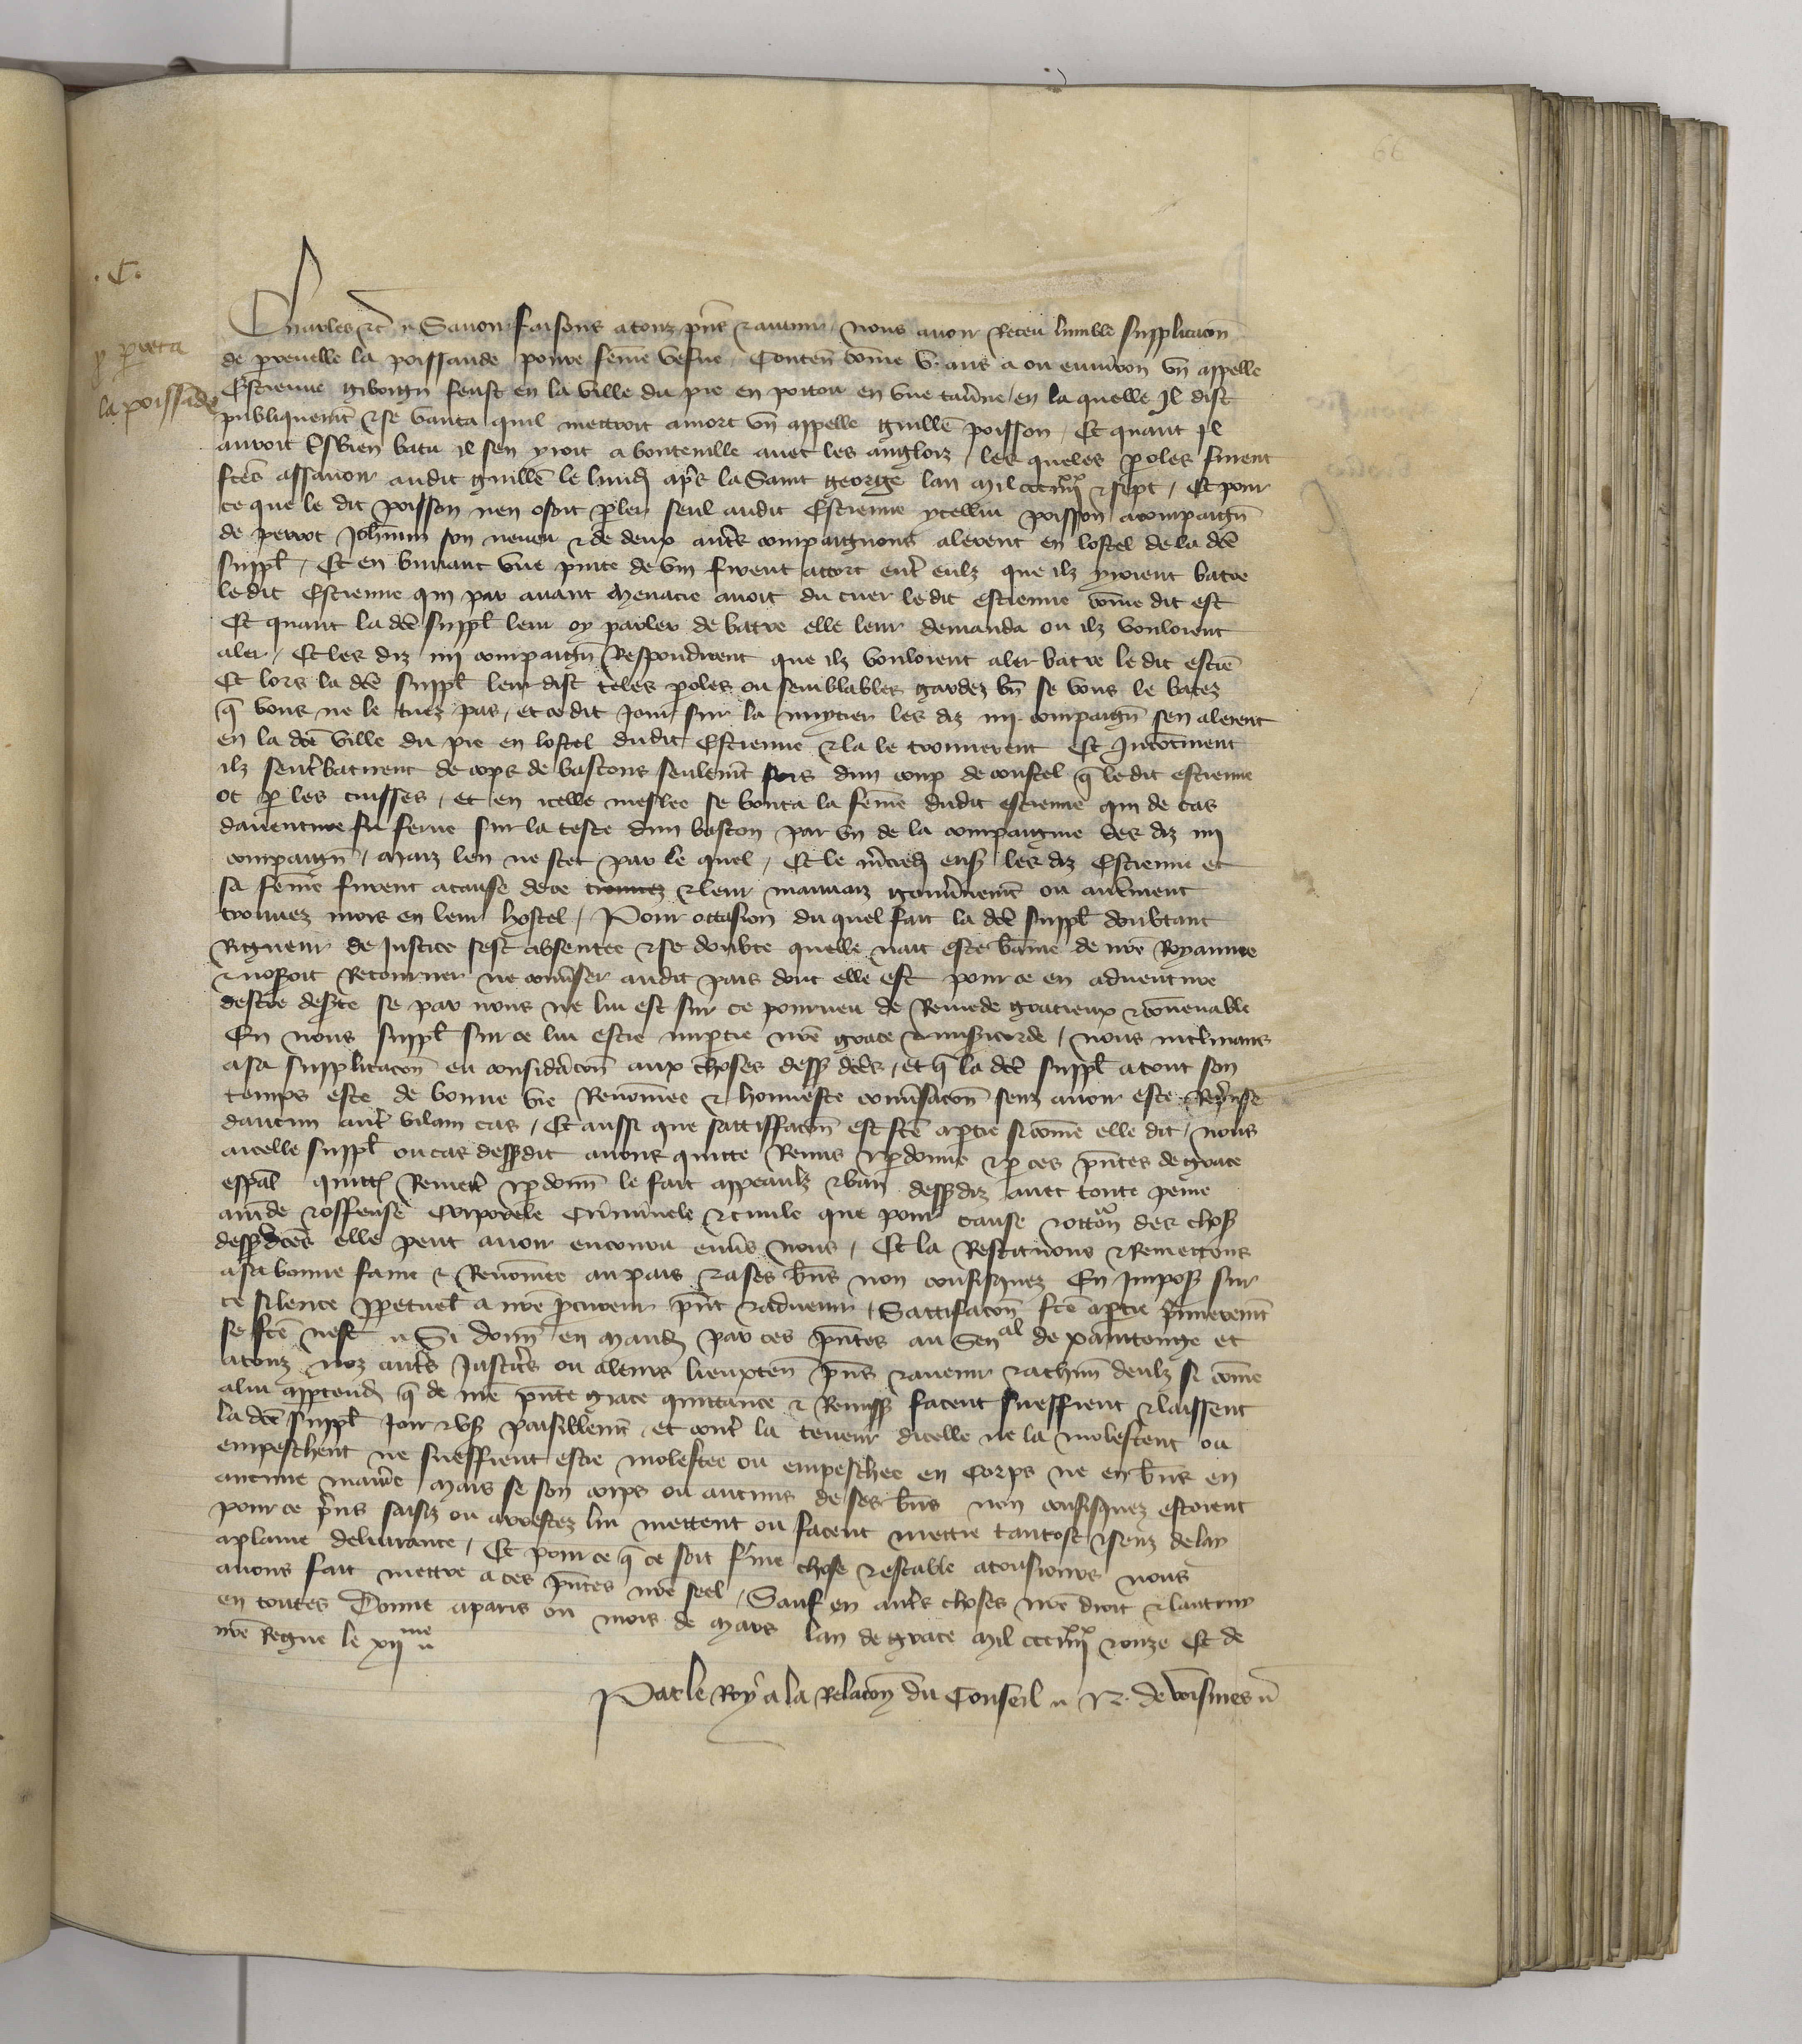 .C.
p perreta
la poissade
Charles etc Savoir faisons a touz pñs et avenir nous avoir receu lumble supplicacoñ
de perenelle la poissande povre feme vefve, Conteñ cõme v. ans a ou environ un appelle
Estienne giborgñ feust en la ville du pie en poitou en une tav̄ne en la quelle Il dist
publiquemt̄ et se vanta quil mettroit a mort un appelle guillē poisson, Et quant Il
auroit bien batu il sen yroit a bouteville avec les anglois, les queles p̱oles furent
fc̄es assavoir audit guillē le lundj apr̄s la Saint george lan mil ccc iiijxx et sept, Et pour
ce que le dit poisson nen osoit p̱ler seul audit Estienne ycellui poisson acompaigñ
de perrot Johñnin son neveu et de deux autr̄s compaignons alerent en lostel de la dc̄e
suppl̄, Et en buvant une pinte de vin firent accort entr̄ eulz que ilz yroient batre
ledit Estienne qui par avant menacie avoit du tuer le dit estienne cõme dit est
Et quant la dc̄e suppl̄ leur oy parler de batre elle leur demanda ou ilz vouloient
aler, Et les diz iiij compaigñ respondirent que ilz vouloient aler batre le dit estiē
Et lors la dc̄e suppl̄ leur dist teles p̱oles ou semblables gardez bñ se vous le batez
q̄ vous ne le tuez pas, et ce dit Jour sur la nuytier les diz iiij compaigñ sen alerent
en la dc̄e ville du pie en lostel dudit Estienne et la le trouverent Et Incōtinent
ilz sentr̄batirent de cops de bastons seulemt̄ fors dun coup de coustel q̄ ledit estienne
ot p̱ les cuisses, et en icelle meslee se bouta la feme dudit estienne qui de cas
daventure fu ferue sur la teste dun baston par un de la compaignie des diz iiij
compaigñ, maiz len ne scet par le quel, Et le m̄credj ens̄ les diz Estienne et
sa feme furent a cause de ce trouvez et leur mauvaiz gouv̄nemt̄ ou autrement
trouvez mors en leur hostel, Pour occasion du quel fait la dc̄e suppl̄ doubtant
rigueur de justice sest absentee et se doubte quelle nait este banie de nr̄e Royaume
et noseroit retourner ne conv̄ser audit pais dont elle est pour ce en adventure
destre deserte se par nous ne lui est sur ce pourveu de remede gracieux et cōvenable
En nous suppl̄ sur ce lui estre imp̱tie nr̄e grace et miscorde, nous inclinans
a sa supplicacoñ en consid̄acoñ aux choses dess̄ dc̄es, et q̄ la dc̄e suppl̄ a tout son
temps este de bonne vie renomee et honneste conv̄sacoñ senz avoir este reprise
daucun autr̄ vilain cas, Et aussi que sattiffacoñ est fc̄e a p̱tie si cõme elle dit, nous
a icelle suppl̄ ou cas dess̄dit avons quitte remis et p̱donne et p̱ ces pñtes de grace
esp̄al quittj remett̄ et p̱donñ le fait appeaulz et ban dess̄diz avec toute peine
am̄de et offense corporele crim̄inele et civile que pour cause et occoñ des chos̄
dess̄dc̄es elle peut avoir encouru env̄s nous, Et la restituons et remettons
a sa bonne fame et renomee au pais et a ses bñs non confisquez En Impos̄ sur
ce silence p̱petuel a nr̄e p̱cureur pñt et advenir, Sattifacoñ fc̄e a p̱tie p̄mieremt̄
se fc̄e nest Si donñ en mandj par ces pñtes au Senal de Xaintonge et
a touz noz autr̄s Justic̄rs ou a leurs lieuxteñ pñs et avenir et a chūn deulz si cōme
a lui app̱tendj q̄ de nr̄e pñte grace quittance et remiss̄ facent sueffrent et laissent
la dc̄e suppl̄ Joir et us̄ paisiblemt̄ et contr̄ la teneur dicelle ne la molestent ou
empeschent ne sueffrent estre molestee ou empeschee en corps ne en bñs en
aucune maniē mais se son corps ou aucuns de ses bñs non confisquez estoient
pour ce prins saisiz ou arrestez lui mettent ou facent mettre tantost et senz delay
a plaine delivrance, Et pour ce q̄ ce soit ferme chose et estable a tousiours nous
avons fait mettre a ces pñtes nr̄e seel, Sauf en autr̄s choses nr̄e droit et lautruy
en toutes Donne a paris ou mois de Mars lan de grace mil ccc iiijxx et onze Et de
nr̄e Regne le xijme
Par le Roy a la relacoñ du Conseil N. de voisines